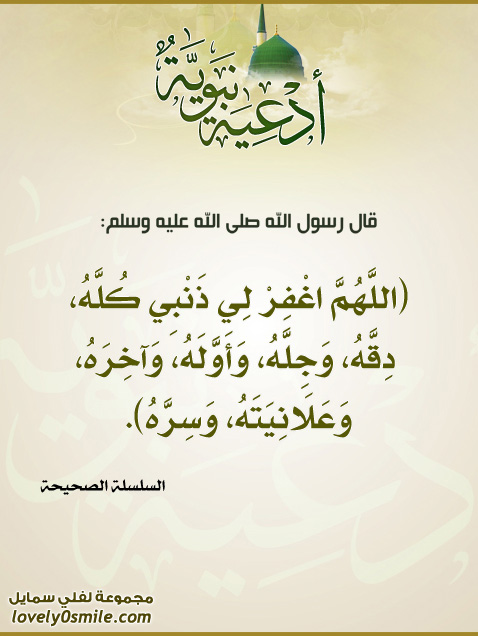 أدعية نبوية
قال رسول الله صلى الله عليه وسلم:
(اللَّهُمَّ اغْفِرْ لِي ذَنْبِي كُلَّهُ،
دِقَّهُ، وَجِلَّهُ، وَأَوَّلَهُ، وَآخِرَهُ،
وَعَلَانِيَتَهُ، وَسِرَّهُ).
السلسلة الصحيحة
مجموعة لفلي سمايل
lovely0smile.com